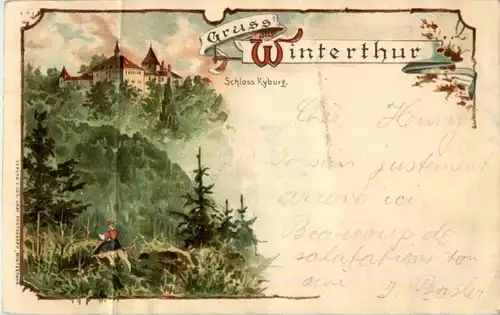 Gruss aus
Winterthur
Schloss Kyburg.
Cher Henry
justement
arrivé ici
Beaucoup de
salutations ton
ami